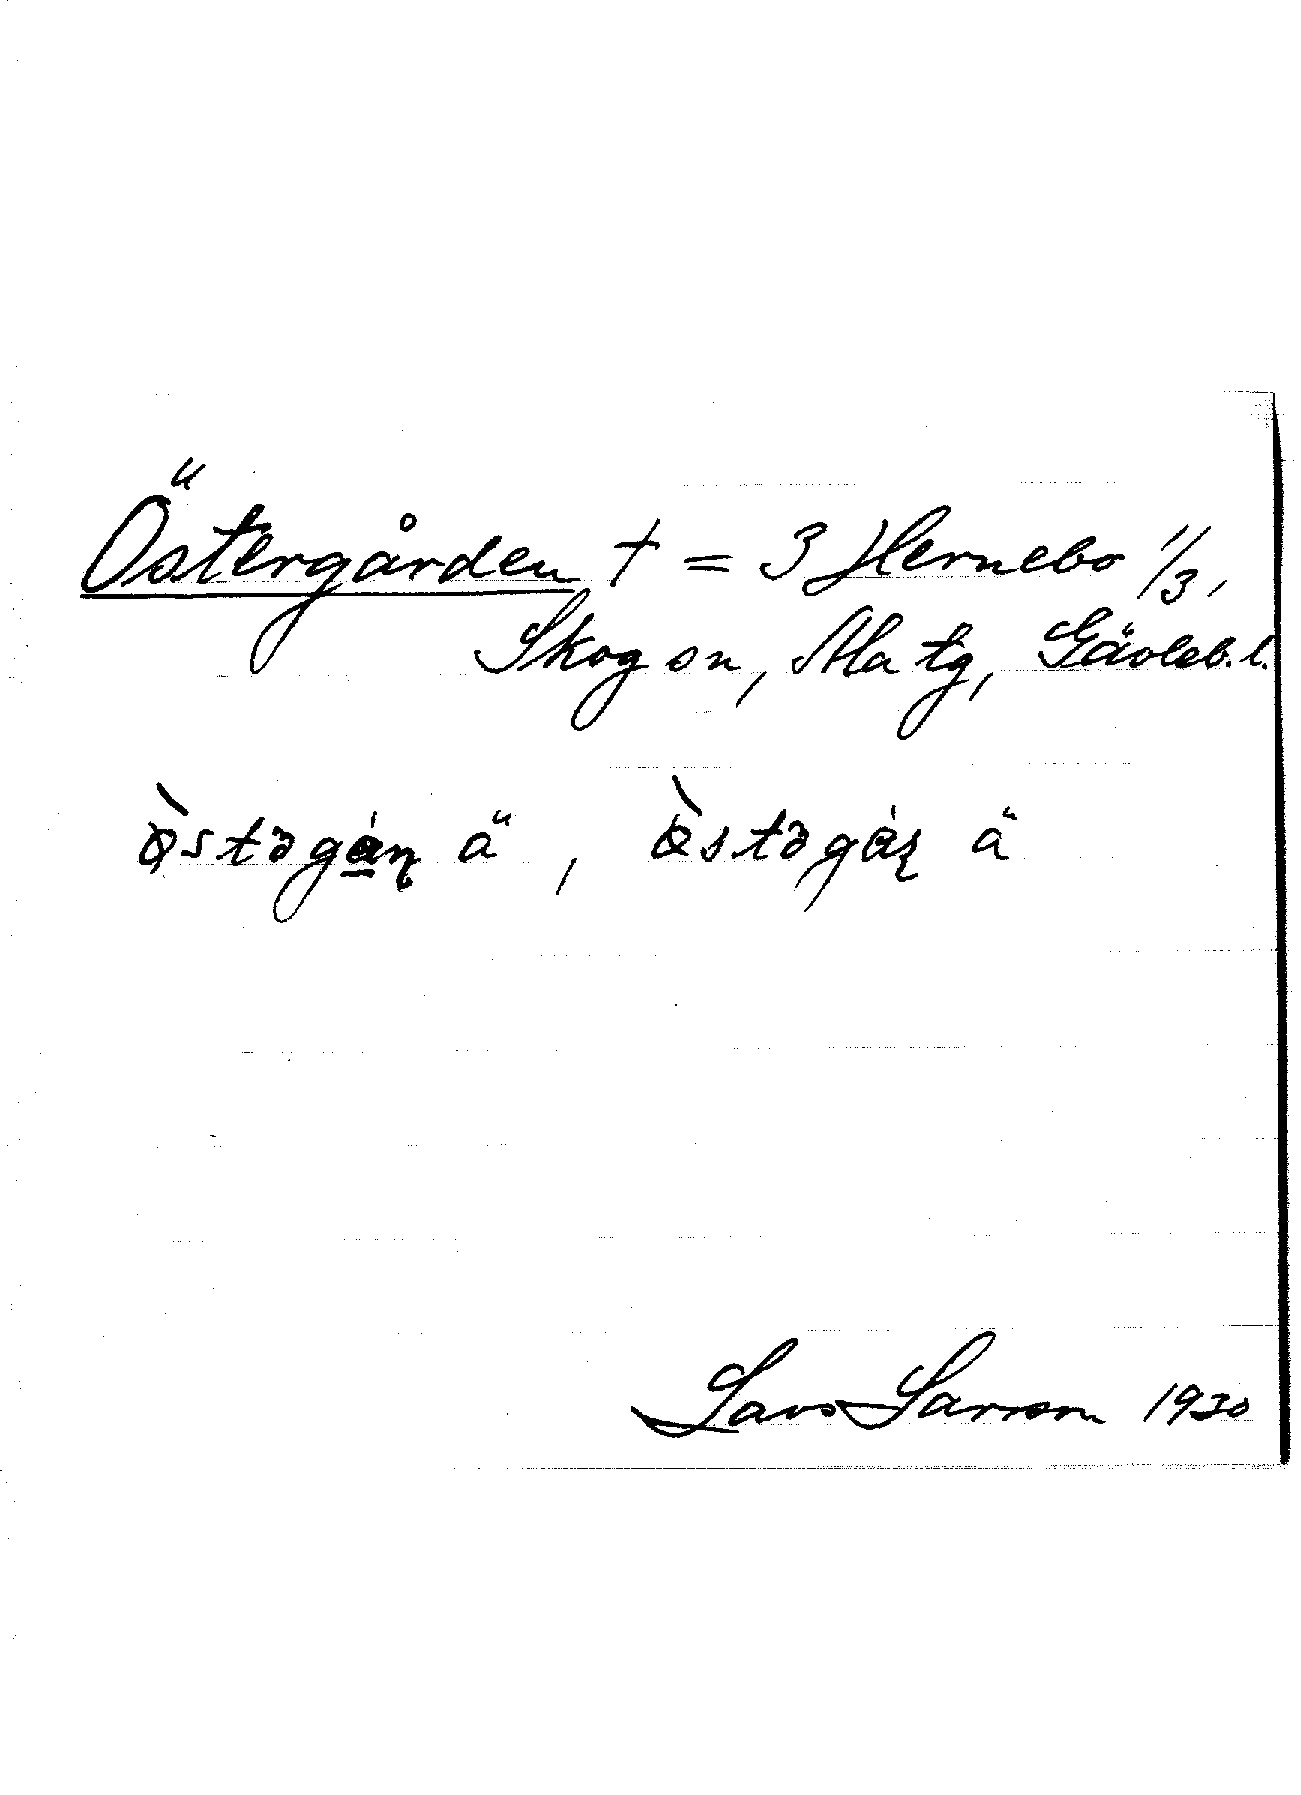 Östergården † = 3 Hernebo 1/3,
Skog sn, Ala tg, Gävleb. l.
ö̀stəgáɳ ä, ö̀stəgáʂ ä
Lars Larsson 1930